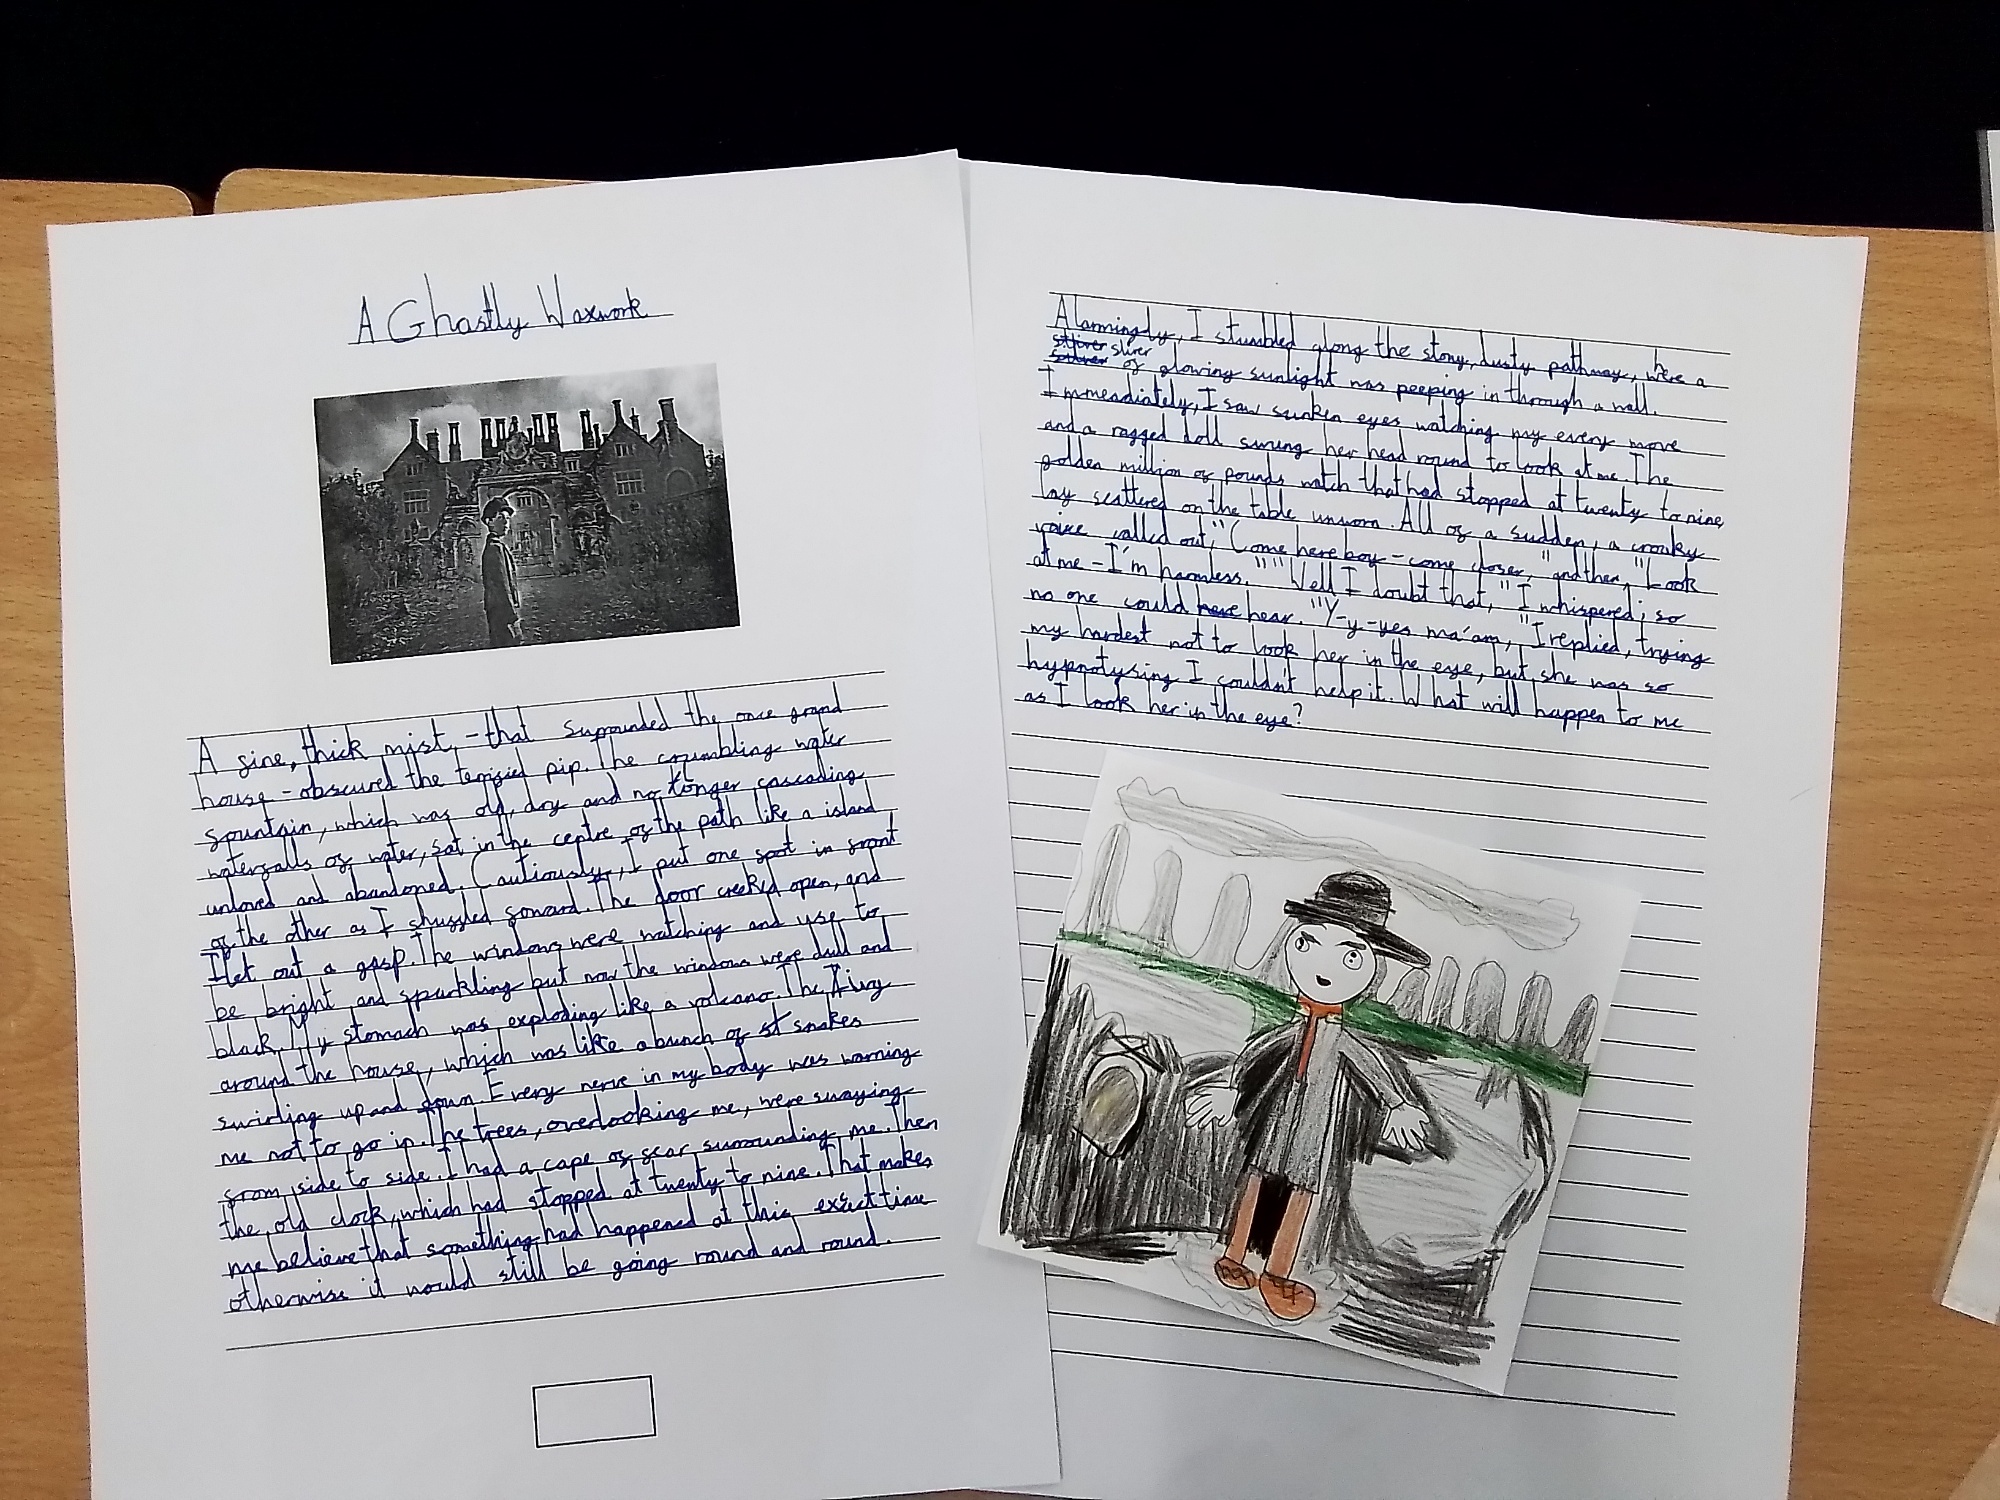 A Ghastly Waxwork
A fine, thick mist, - that surrounded the once grand
house - obscured the terrified pip. The crumbling water
fountain, which was old, dry and no longer cascading
waterfalls of water, sat in the centre of the path like a island
unloved and abandoned. Cautiously, I put one foot in front
of the other as I shuffled forward. The door creeked open, and
I let out a gasp. The windows were watching and use to
be bright and sparkling but now the windows were dull and
black. My stomach was exploding like a volcano. The Aivy
around the house, which was like a bunch of st snakes
swirling up and down. Every nerve in my body was warning
me not to go in. The trees, overlooking me, were swaying
from side to side. I had a cape of fear surrounding me. Then
the old clock, which had stopped at twenty to nine. That makes
me believe that something had happened at this exact time
otherwise it would still be going round and round.
Alarmingly, I stumbled along the stony, dusty pathway, were a
sliver of glowing sunlight was peeping in through a wall.
Immeadiately, I saw sunken eyes watching my every move
and a ragged doll swung her head round to look at me. The
golden million of pounds watch that had stopped at twenty to nine,
lay scattered on the table unworn. All of a sudden, a croaky
voice called out, "Come here boy - come closer," and then, "Look
at me - I'm harmless." "Well I doubt that," I whispered; so
no one could here hear. "Y-y-yes ma'am, "I replied, trying
my hardest not to look her in the eye, but she was so
hypnotysing I couldn't help it. What will happen to me
as I look her in the eye?